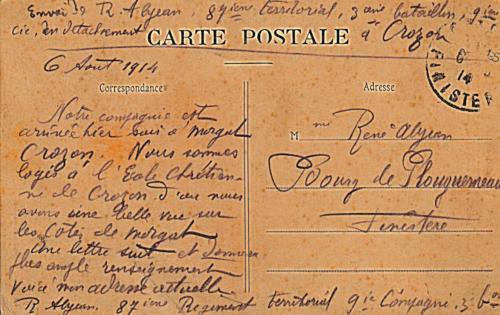 Envoi de R Abjean 87ième territorial, 3ième bataillon, 9ième
cie, en détachement à Crozon
CARTE POSTALE
6 Aout 1914
Correspondance
Adresse
FINISTERE
Notre compagnie est
arrivée hier soir à Morgat
Crozon. Nous sommes
logés à l'École chrétien-
ne de Crozon d'où nous
avons une belle vue sur
les Côtes de Morgat
Une lettre suit et donnera
plus ample renseignement
Voici mon adresse actuelle
R. Abjean. 87ième Régiment territorial 9ie Compagnie. 3 bon
M me René Abjean
Bourg de Plouguerneau
Finistère